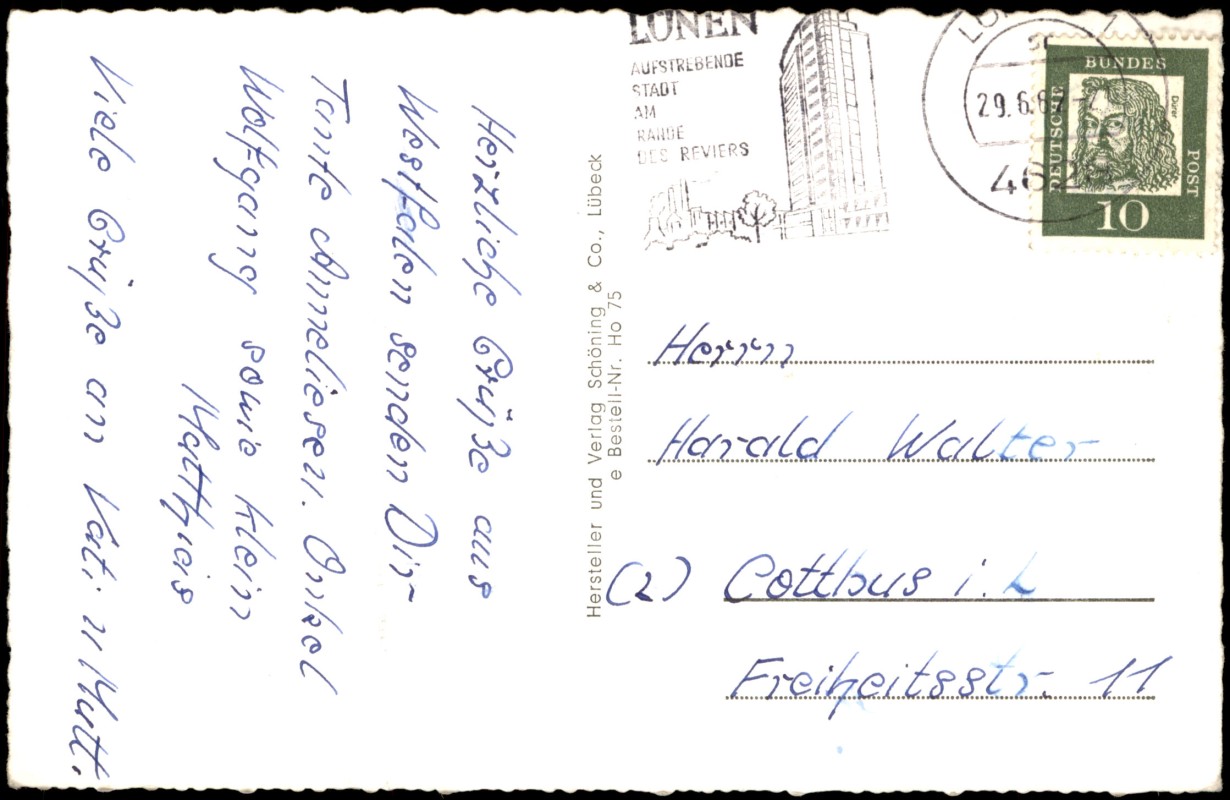 Herzliche Grüße aus
Westfalen senden Dir
Tante Anneliese u. Onkel
Wolfgang sowie klein
Matthias
Viele Grüße an Vati u Mutti.
Hersteller und Verlag Schöning & Co., Lübeck
e Bestell-Nr. Ho 75
LÜNEN
AUFSTREBENDE
STADT
AM
RANDE
DES REVIERS
29.6.6
DEUTSCHE
BUNDES
POST
Dürer
10
Herrn
Harald Walter
(2) Cottbus i. L
Freiheitsstr. 11